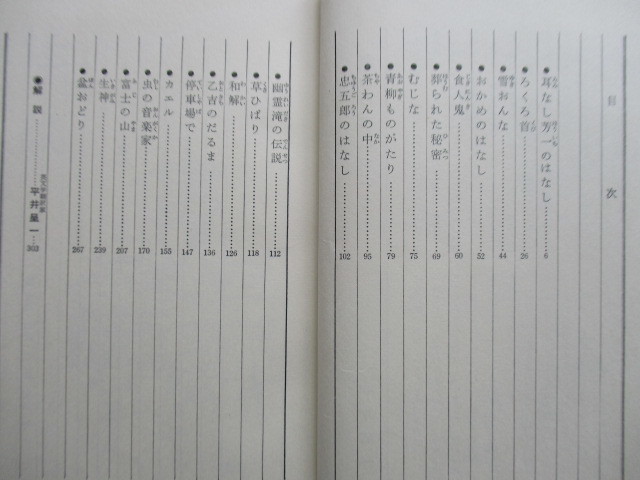 目 次
●耳なし芳一のはなし………6
●ろくろ首………26
●雪おんな………44
●おかめのはなし………52
●食人鬼………60
●葬られた秘密………69
●むじな………75
●青柳ものがたり………79
●茶わんの中………95
●忠五郎のはなし………102
●幽霊滝の伝説………112
●草ひばり………118
●和解………126
●乙吉のだるま………136
●停車場で………147
●カエル………155
●虫の音楽家………170
●富士の山………207
●生神………239
●盆おどり………267
●解説………平井呈一…303